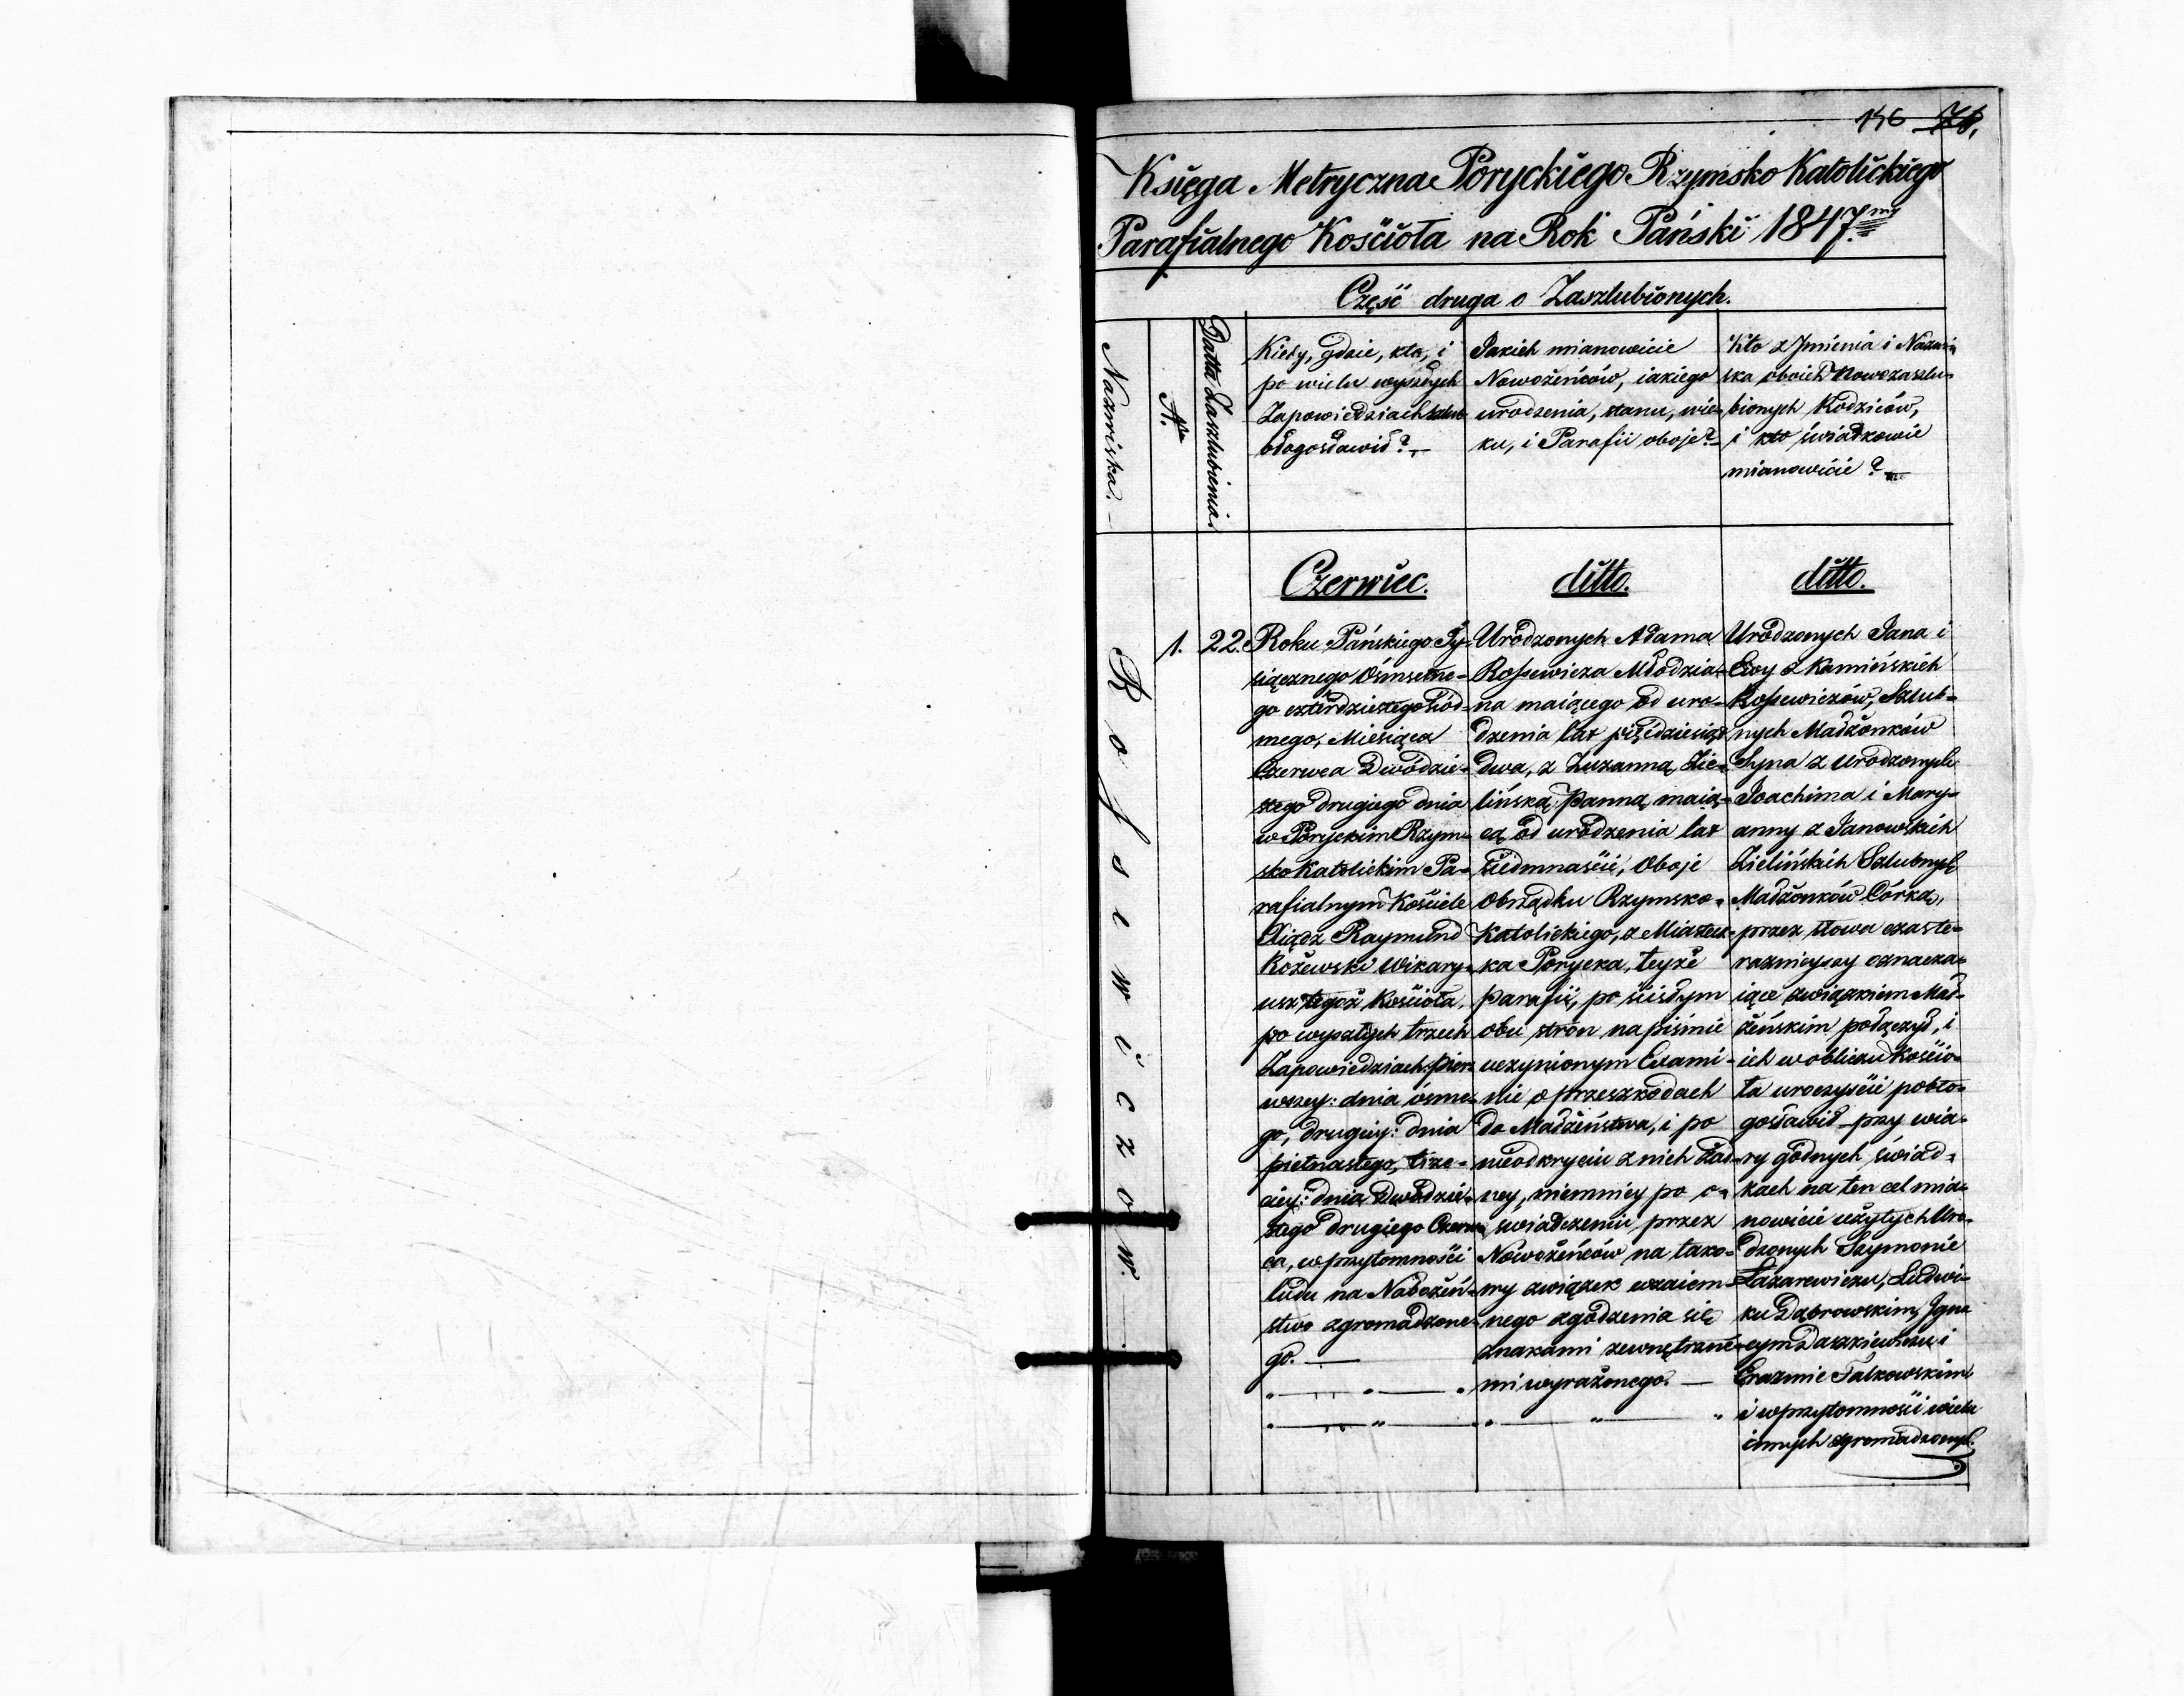 Księga Metryczna Poryckiego Rzymsko Katolickiego
Parafialnego Kościoła na Rok Pański 1847.my
Część druga o Zaszlubionych.
Nazwiska.
Nro
Datta Zaszlubienia.
Kiedy, gdzie, kto, i
po wielu wyszłych
Zapowiedziach
błogosławił?
Jakich mianowicie
Nowożeńców, iakiego
urodzenia, stanu, wie-
ku, i Parafii oboje?
Kto z Jmienia i Nazwi-
ska oboich Nowozaszlu-
bionych Rodziców,
i kto świadkowie
mianowicie?
Czerwiec.
ditto.
ditto.
Rofsewiczów.
1.
22.
Roku Pańskiego Ty-
siącznego Ósmsetne-
go czterdziestego siód-
mego, Miesiąca
Czerwca Dwódzie-
stego drugiego dnia
w Poryckim Rzym-
sko Katolickim Pa-
rafialnym Kościele
Xiądz Raymund
Rożewski Wikary-
usz tegoż Kościoła,
po wyszłych trzech
Zapowiedziach: pier-
wszey: dnia ósme-
go, drugiey: dnia
pietnastego, trze-
ciey: dnia Dwódzie-
stego drugiego Czerw-
ca, w przytomności
ludu na Nabożeń-
stwo zgromadzone-
go.
Urodzonych Adama
Rofsewicza Młodzia-
na maiącego od uro-
dzenia lat pięćdziesiąt
dwa, z Zuzanną Zie-
lińską Panną, maią-
cą od urodzenia lat
siedmnaście, Oboje
Obrządku Rzymsko-
Katolickiego, z Miastecz-
ka Porycka, teyże
parafii, po ścisłym
obu stron na piśmie
uczynionym Exami-
nie o przeszkodach
do Małżeństwa, i po
nieodkryciu z nich żad-
ney, niemniey po o-
świadczeniu przez
Nowożeńców na tako-
wy związek wzaiem-
nego zgodzenia się
znakami zewnętrzne-
mi wyrażonego.
Urodzonych Jana i
Ewy z Kamińskich
Rofsewiczów, Szlub-
nych Małżonków
Syna z Urodzonych
Joachima i Mary-
anny z Janowskich
Zielińskich Szlubnych
Małżonków Córką,
przez słowa czas te-
raznieyszy oznacza-
iące związkiem Mał-
żeńskim połączył, i
ich w obliczu Kościo-
ła uroczyście pobło-
gosławił przy wia-
ry godnych świad-
kach na ten cel mia-
nowicie użytych Uro-
dzonych Szymonie
Łazarewiczu, Ludwi-
ku Dąbrowskim, Igna-
cym Daszkiewiczu i
Erazmie Falkowskim
i w przytomności wielu
innych zgromadzonych.